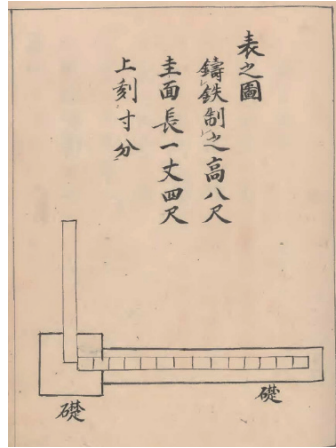 表之圖
鑄鉄制之高八尺
圭面長一丈四尺
上刻寸分
礎
礎